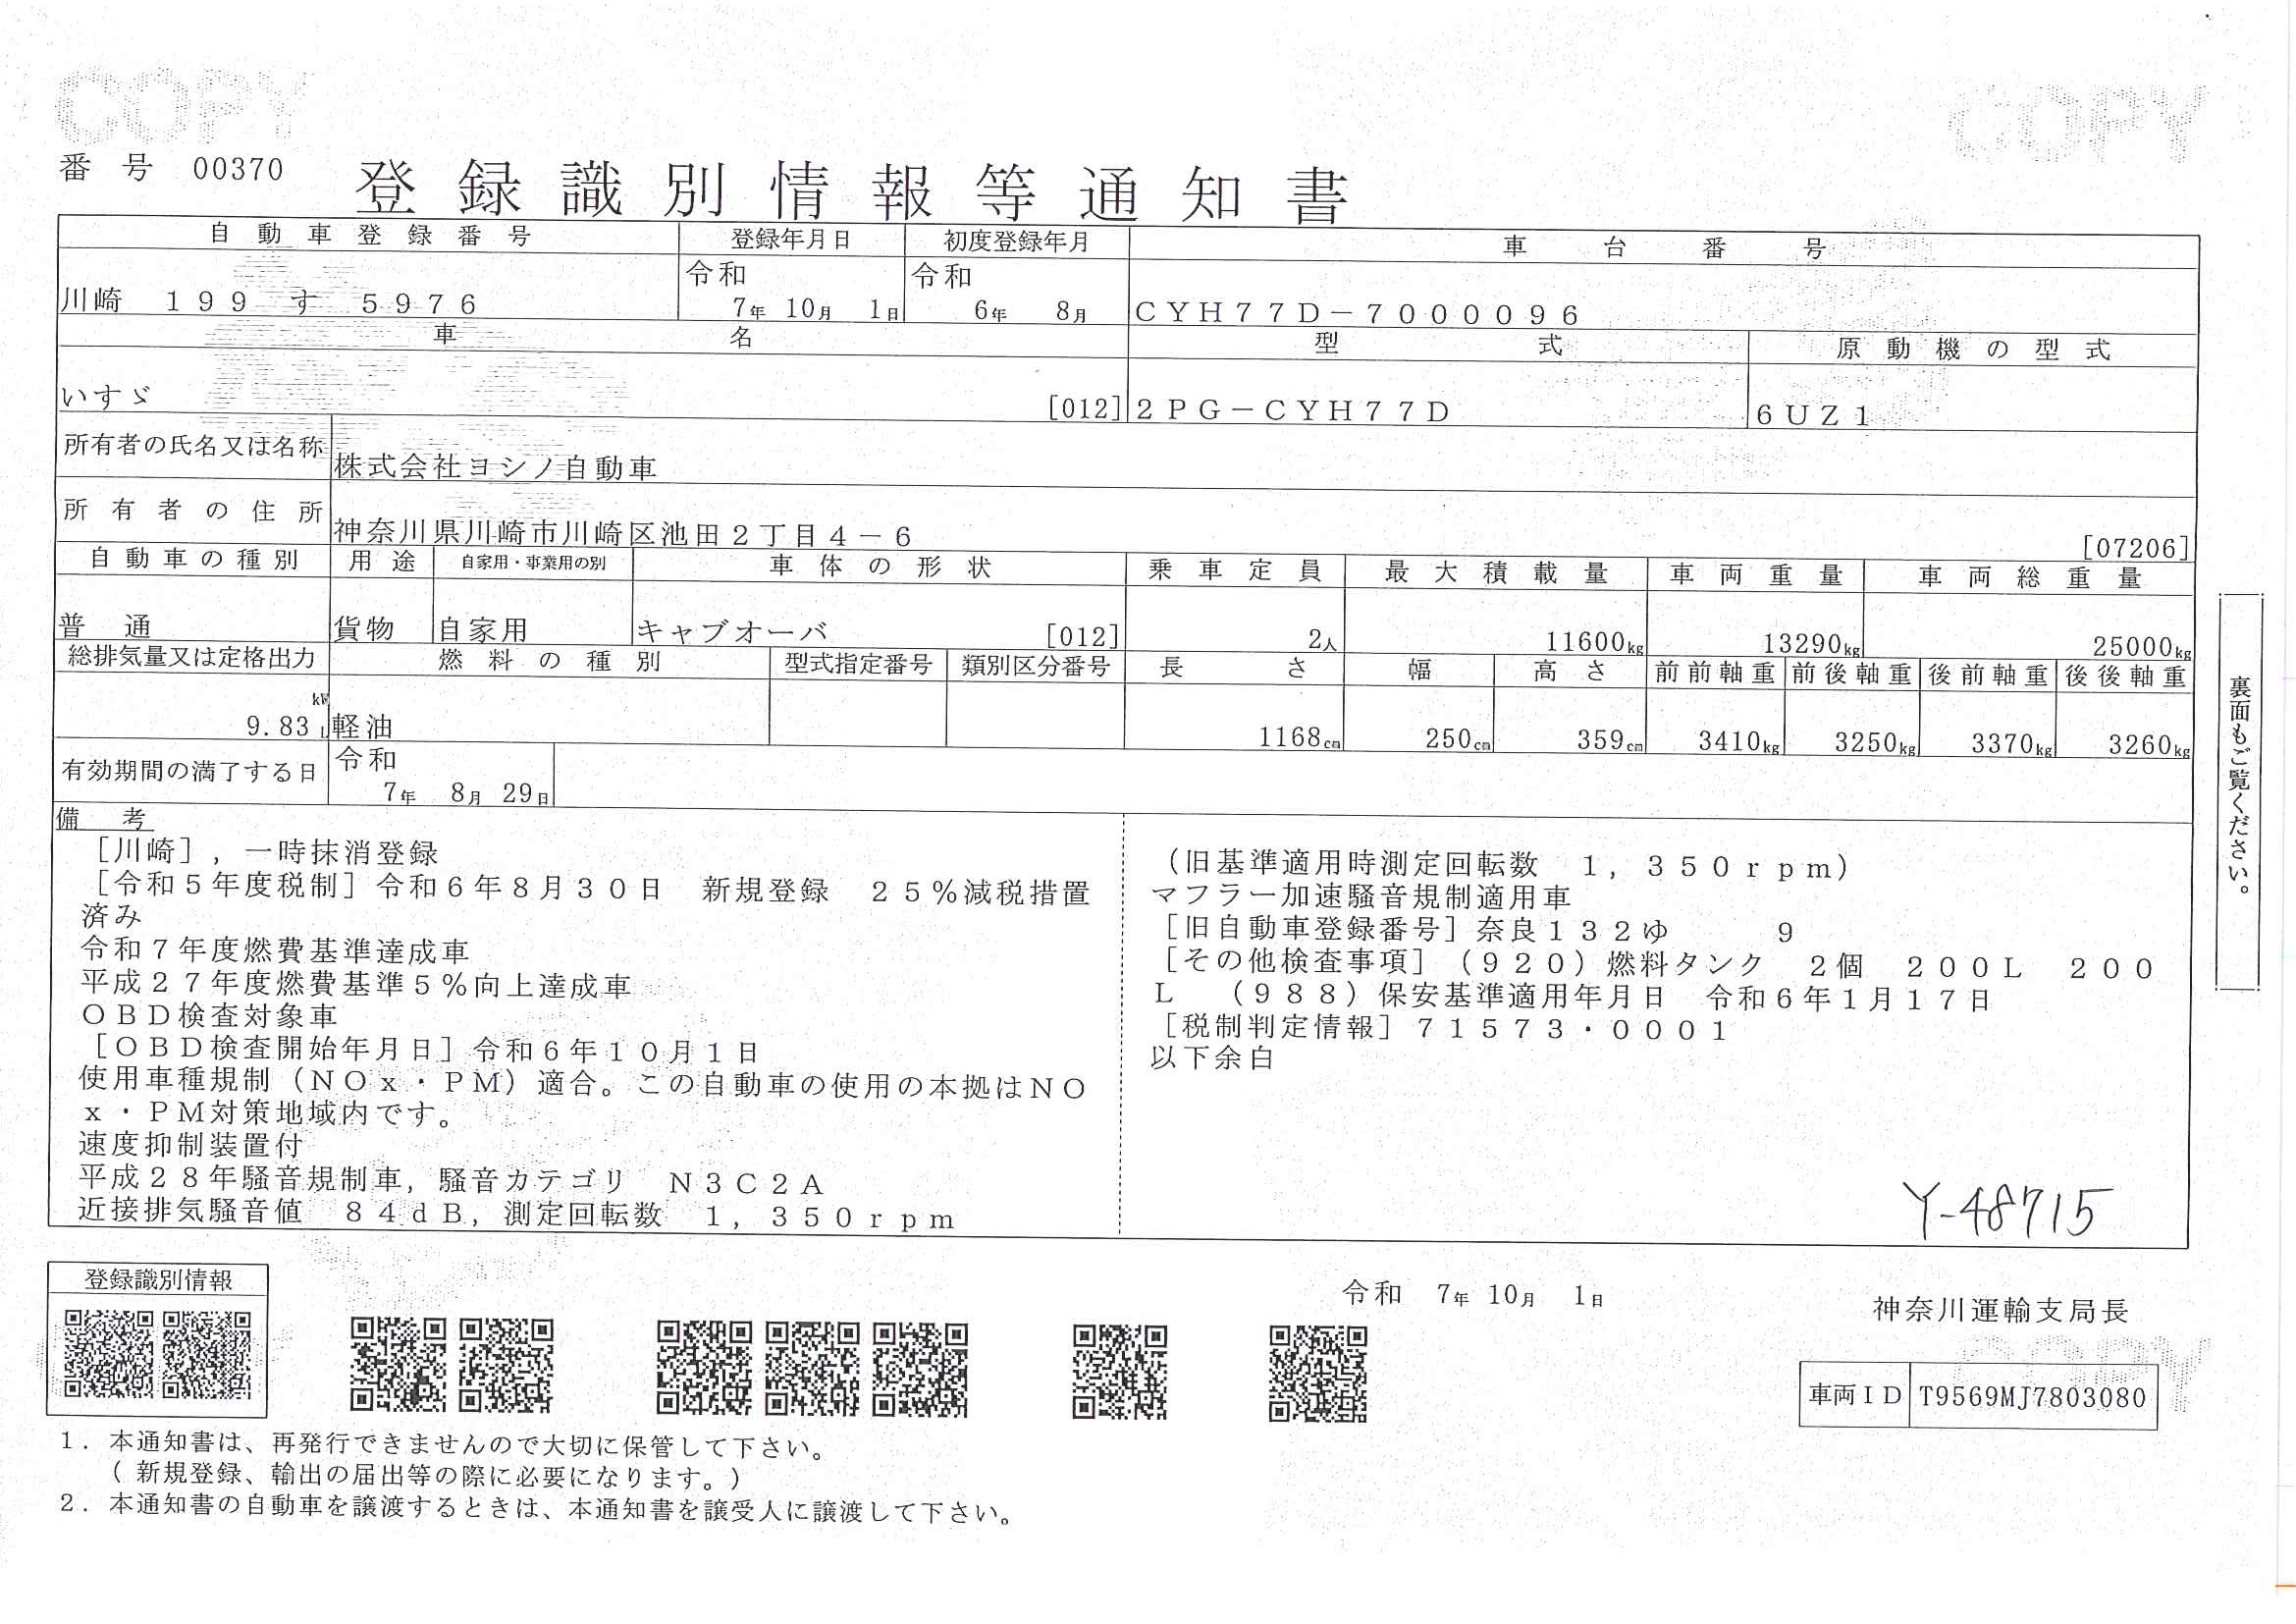 COPY COPY
番号 00370 登録識別情報等通知書
自動車登録番号 登録年月日 初度登録年月 車台番号
川崎 199 す 5976 令和 7年 10月 1日 令和 6年 8月 CYH77D-7000096
車名 型式 原動機の型式
いすゞ [012] 2PG-CYH77D 6UZ1
所有者の氏名又は名称 株式会社ヨシノ自動車
所有者の住所 神奈川県川崎市川崎区池田2丁目4-6 [07206]
自動車の種別 用途 自家用・事業用の別 車体の形状 乗車定員 最大積載量 車両重量 車両総重量
普通 貨物 自家用 キャブオーバ [012] 2人 11600kg 13290kg 25000kg
総排気量又は定格出力 燃料の種別 型式指定番号 類別区分番号 長さ 幅 高さ 前前軸重 前後軸重 後前軸重 後後軸重
kW
9.83 L 軽油 1168cm 250cm 359cm 3410kg 3250kg 3370kg 3260kg
有効期間の満了する日 令和 7年 8月 29日
備考
[川崎],一時抹消登録
[令和5年度税制]令和6年8月30日 新規登録 25%減税措置
済み
令和7年度燃費基準達成車
平成27年度燃費基準5%向上達成車
OBD検査対象車
[OBD検査開始年月日]令和6年10月1日
使用車種規制(NOx・PM)適合。この自動車の使用の本拠はNO
x・PM対策地域内です。
速度抑制装置付
平成28年騒音規制車,騒音カテゴリ N3C2A
近接排気騒音値 84dB,測定回転数 1,350rpm
(旧基準適用時測定回転数 1,350rpm)
マフラー加速騒音規制適用車
[旧自動車登録番号]奈良132ゆ 9
[その他検査事項](920)燃料タンク 2個 200L 200
L (988)保安基準適用年月日 令和6年1月17日
[税制判定情報]71573・0001
以下余白
Y-48715
裏面もご覧ください。
登録識別情報
令和 7年 10月 1日
神奈川運輸支局長
COPY
車両ID T9569MJ7803080
1.本通知書は、再発行できませんので大切に保管して下さい。
(新規登録、輸出の届出等の際に必要になります。)
2.本通知書の自動車を譲渡するときは、本通知書を譲受人に譲渡して下さい。